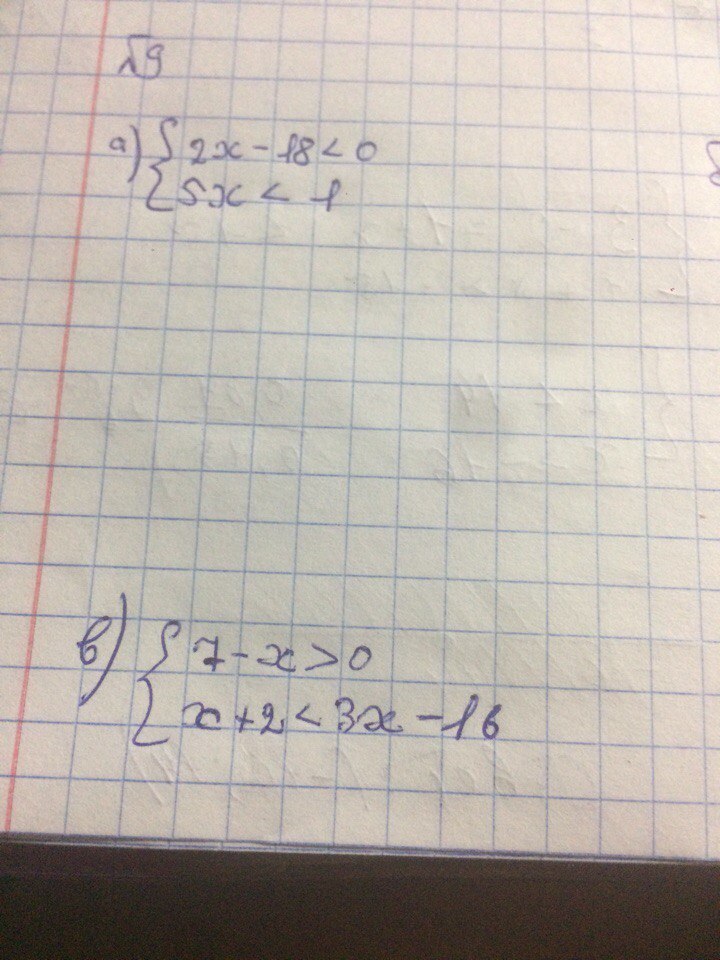 √9
а) { 2x - 18 < 0
5x < 1
в) { 7 - x > 0
x + 2 < 3x - 16